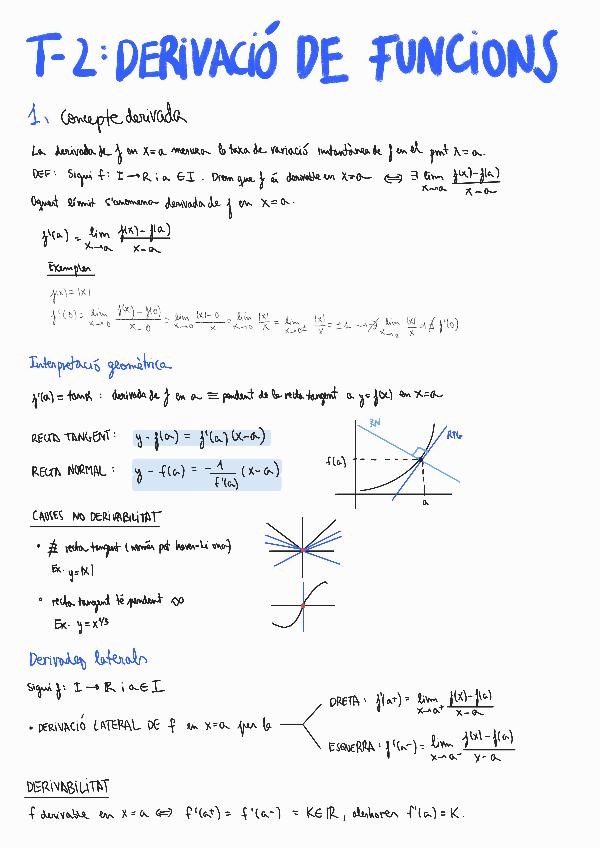 T-2: DERIVACIÓ DE FUNCIONS
1. Concepte derivada
La derivada de f en x=a mesura la taxa de variació instantànea de f en el punt x=a.
DEF: Sigui f: I → R i a ∈ I. Direm que f és derivable en x=a ⟺ ∃ lim x→a (f(x)-f(a))/(x-a)
Aquest límit s'anomena derivada de f en x=a.
f'(a) = lim x→a (f(x)-f(a))/(x-a)
Exemples
f(x)=|x|
f'(0) = lim x→0 (f(x)-f(0))/(x-0) = lim x→0 (|x|-0)/x = lim x→0 |x|/x = lim x→0± |x|/x = ±1 → ∄ lim x→0 |x|/x → ∄ f'(0)
Interpretació geomètrica
f'(a) = tanα : derivada de f en a ≡ pendent de la recta tangent a y=f(x) en x=a
RECTA TANGENT: y-f(a) = f'(a)(x-a)
RECTA NORMAL: y-f(a) = -1/f'(a) (x-a)
RN
RTG
f(a)
a
CAUSES NO DERIVABILITAT
• ∄ recta tangent (només pot haver-hi una)
Ex. y=|x|
• recta tangent té pendent ∞
Ex. y=x^1/3
Derivades laterals
Sigui f: I → R i a ∈ I
• DERIVACIÓ LATERAL DE f en x=a per la
DRETA: f'(a+) = lim x→a+ (f(x)-f(a))/(x-a)
ESQUERRA: f'(a-) = lim x→a- (f(x)-f(a))/(x-a)
DERIVABILITAT
f derivable en x=a ⟺ f'(a+) = f'(a-) = K∈R, aleshores f'(a)=K.